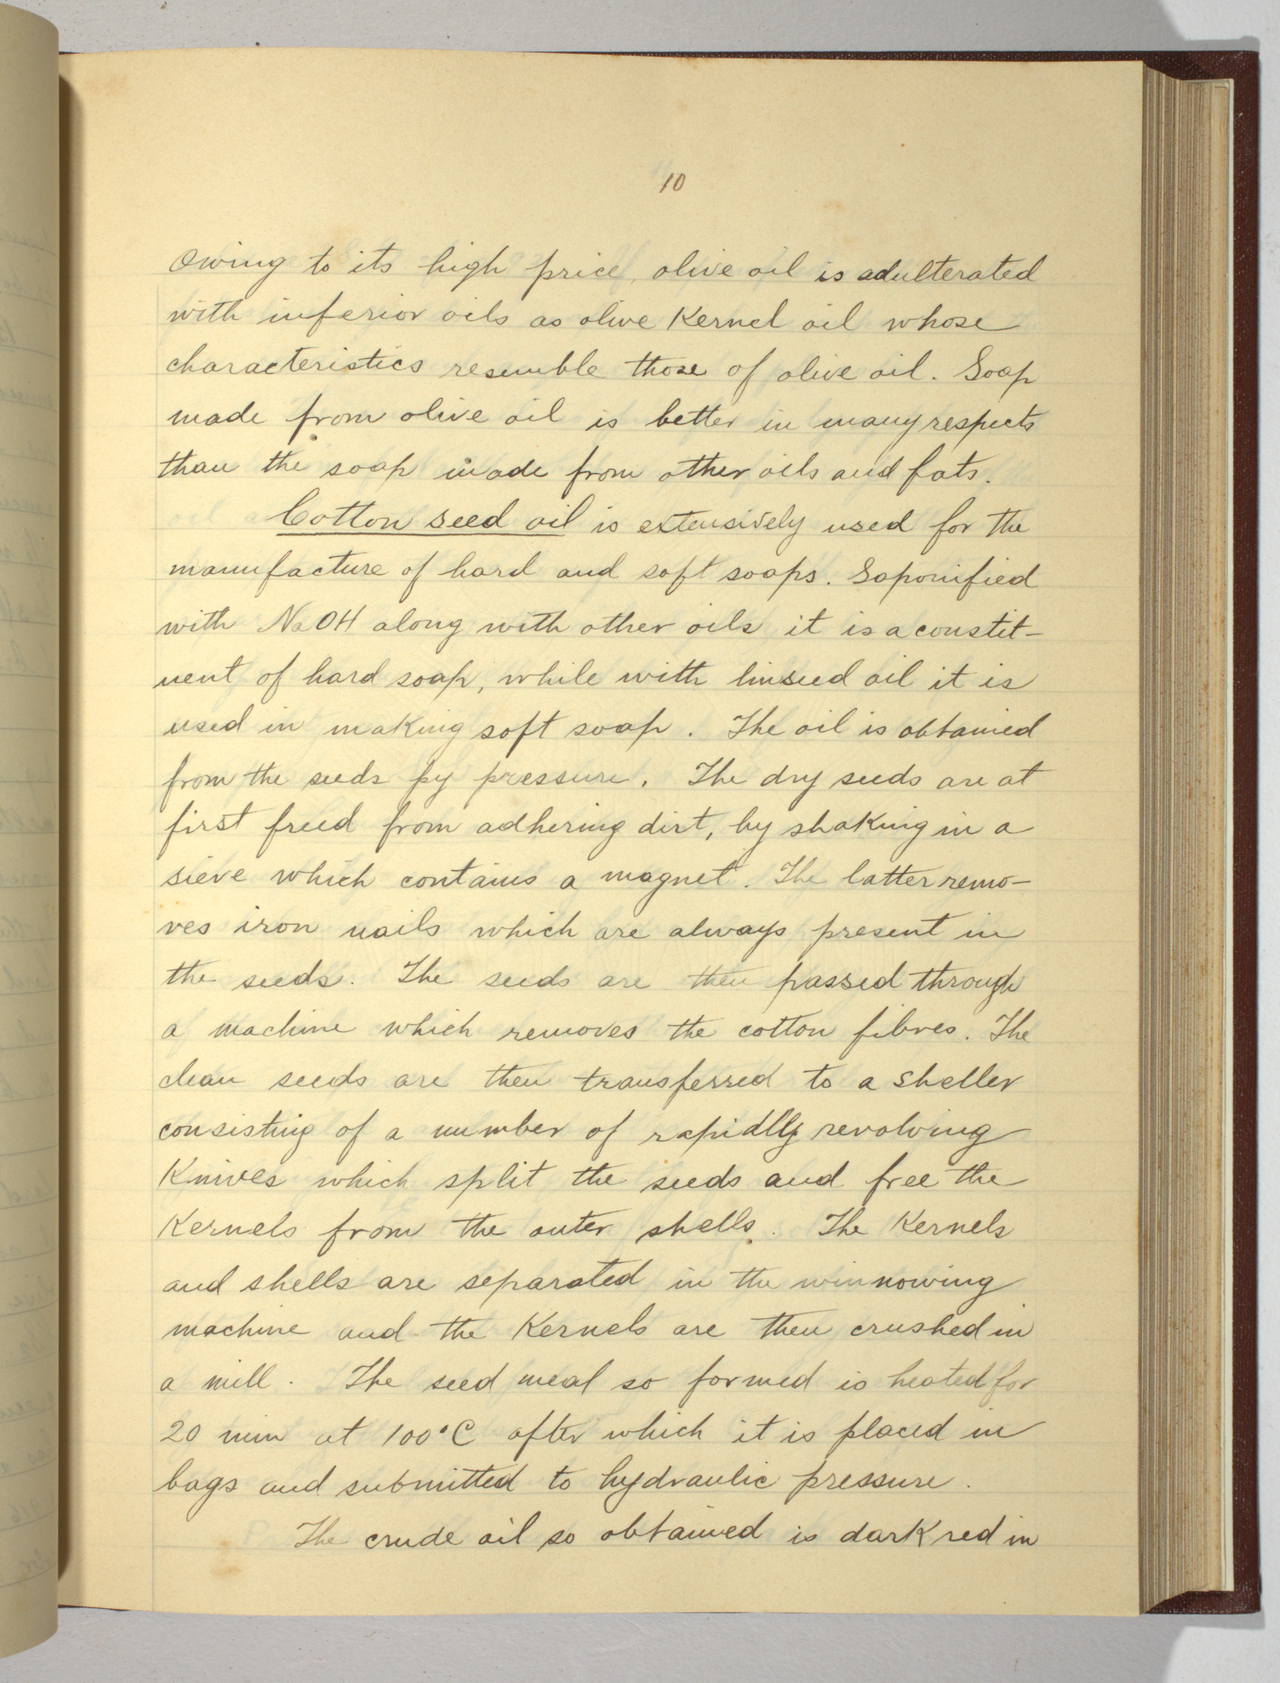 10
Owing to its high price, olive oil is adulterated
with inferior oils as olive Kernel oil whose
characteristics resemble those of olive oil. Soap
made from olive oil is better in many respects
than the soap made from other oils and fats.
Cotton seed oil is extensively used for the
manufacture of hard and soft soaps. Saponified
with NaOH along with other oils it is a constit-
uent of hard soap, while with linseed oil it is
used in making soft soap. The oil is obtained
from the seeds by pressure. The dry seeds are at
first freed from adhering dirt, by shaking in a
sieve which contains a magnet. The latter remo-
ves iron nails which are always present in
the seeds. The seeds are then passed through
a machine which removes the cotton fibres. The
clean seeds are then transferred to a sheller
consisting of a number of rapidly revolving
Knives which split the seeds and free the
Kernels from the outer shells. The Kernels
and shells are separated in the winnowing
machine and the Kernels are then crushed in
a mill. The seed meal so formed is heated for
20 min at 100°C after which it is placed in
bags and submitted to hydraulic pressure.
The crude oil so obtained is dark red in